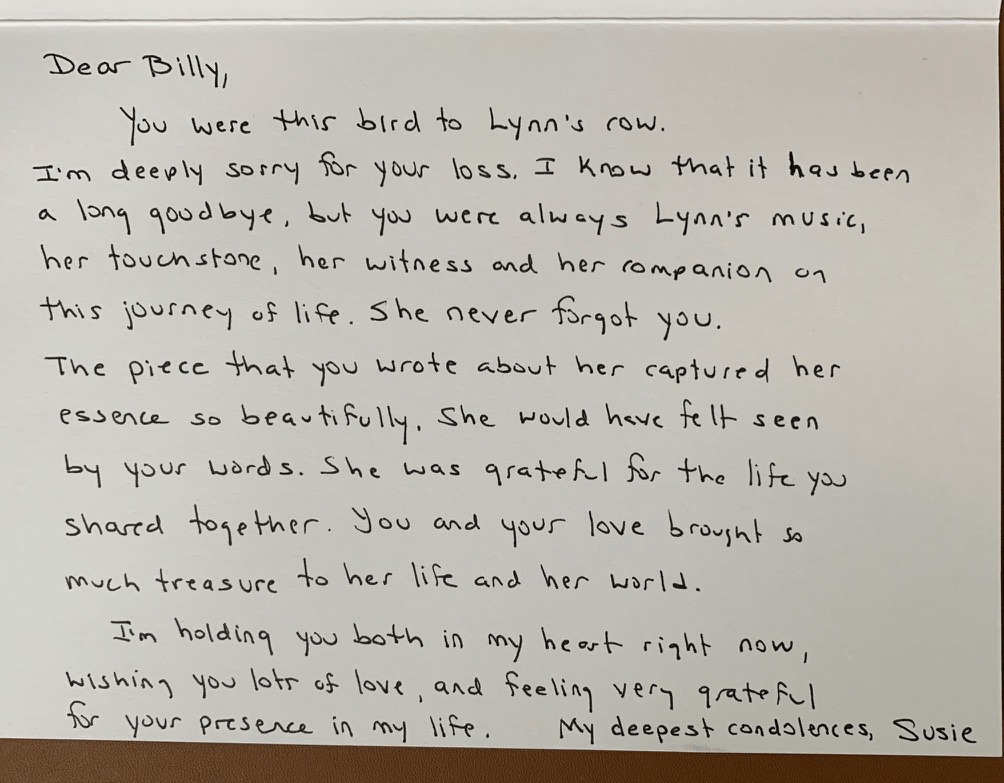 Dear Billy,
You were this bird to Lynn's cow.
I'm deeply sorry for your loss. I know that it has been
a long goodbye, but you were always Lynn's music,
her touchstone, her witness and her companion on
this journey of life. She never forgot you.
The piece that you wrote about her captured her
essence so beautifully. She would have felt seen
by your words. She was grateful for the life you
shared together. You and your love brought so
much treasure to her life and her world.
I'm holding you both in my heart right now,
wishing you lots of love, and feeling very grateful
for your presence in my life. My deepest condolences, Susie